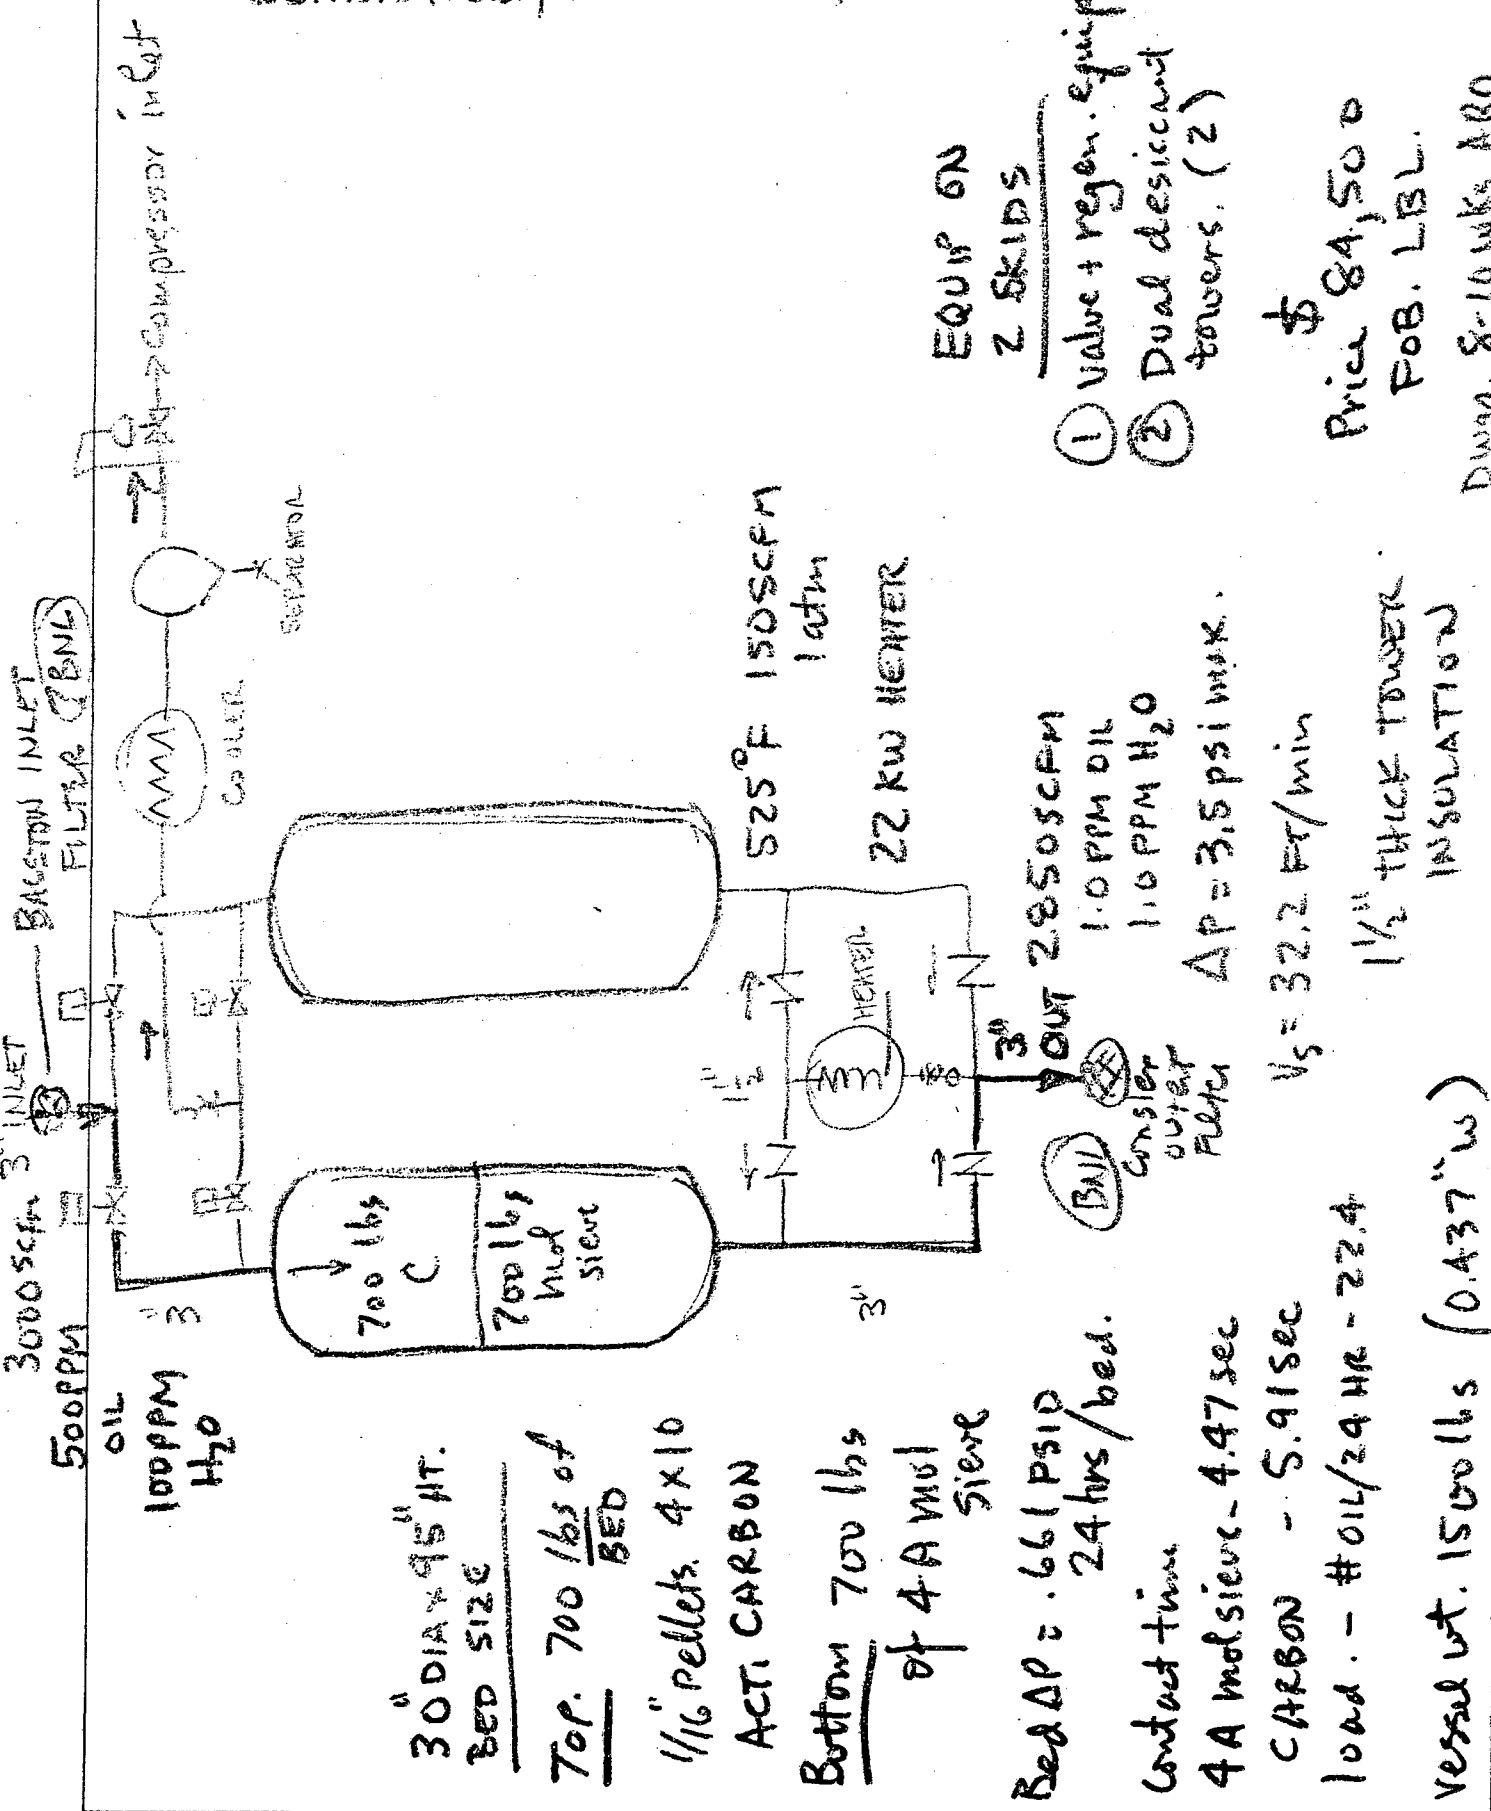 3000 scfm 3" INLET
500PPM
OIL
100PPM
H₂O
BALSTON INLET
FILTER (BNL)
3"
COOLER
SEPARATOR
→ Compressor inlet
700 lbs
C
700 lbs
mol
sieve
3"
1½"
HEATER
525°F 150SCFM
1 atm
22 KW HEATER
3"
OUT 2850SCFM
1.0 PPM OIL
1.0 PPM H₂O
ΔP = 3.5 psi max.
BNL
outlet
Filter
Vs = 32.2 FT/min
1½" THICK TOWER
INSULATION
30" DIA x 95" HT.
BED SIZE
TOP. 700 lbs of
BED
1/16" Pellets. 4 x 10
ACT. CARBON
Bottom 700 lbs
of 4A mol
sieve
Bed ΔP = .661 PSID
24 hrs/bed.
Contact time
4A molsieve - 4.47 sec
CARBON - 5.91 sec
load. - # OIL/24 HR - 22.4
Vessel wt. 1500 lbs (0.437" w)
EQUIP ON
2 SKIDS
① Valve + regen. equip
② Dual desiccant
towers. (2)
$
Price 84,500
FOB. LBL.
8-10 wks ARO